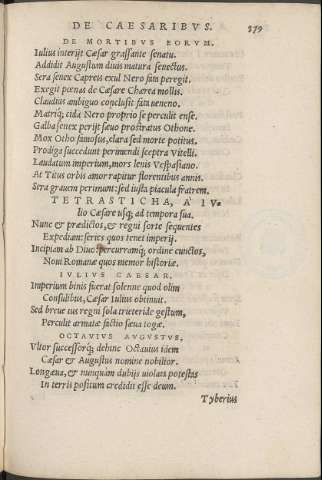 DE CAESARIBVS. 379
DE MORTIBVS EORVM.
Iulius interijt Cæsar grassante senatu.
Addidit Augustum diuis matura senectus.
Sera senex Capreis exul Nero fata peregit.
Exegit pœnas de Cæsare Chærea mollis.
Claudius ambiguo conclusit fata ueneno.
Matricida Nero proprio se perculit ense.
Galba senex perijt sæuo prostratus Othone.
Mox Otho famosus, clara sed morte potitus.
Prodiga succedunt perimendi sceptra Vitelli.
Laudatum imperium, mors lenis Vespasiano.
At Titus orbis amor rapitur florentibus annis.
Sera grauem perimunt: sed iusta piacula fratrem.
TETRASTICHA, A' IV-
lio Cæsare usq; ad tempora sua.
Nunc & prædictos, & regni sorte sequentes
Expediam: series quos tenet imperij.
Incipiam ab Diuo: percurramq; ordine cunctos,
Noui Romanæ quos memor historiæ.
IVLIVS CAESAR.
Imperium binis fuerat solenne quod olim
Consulibus, Cæsar Iulius obtinuit.
Sed breue ius regni sola trieteride gestum,
Perculit armatæ factio sæua togæ.
OCTAVIVS AVGVSTVS.
Vltor successorq; dehinc Octauius idem
Cæsar & Augustus nomine nobilior.
Longæua, & nunquam dubijs uiolata potestas
In terris positum credidit esse deum.
Tyberius